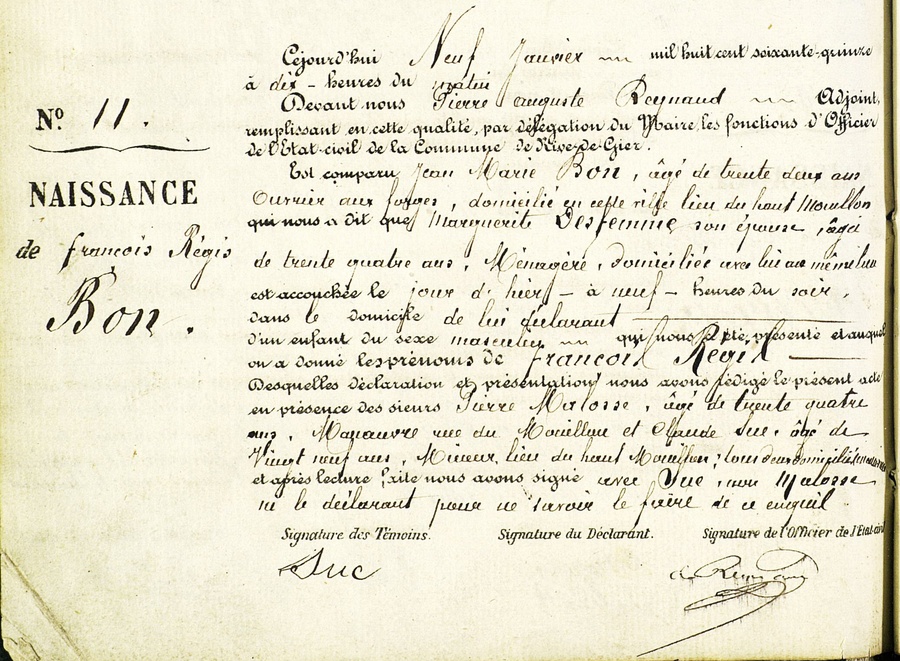 Nº 11.
NAISSANCE
de françois Régis
Bon.
Cejourd'hui Neuf Janvier mil huit cent soixante-quinze
à dix - heures du matin
Devant nous Pierre auguste Reynaud Adjoint,
remplissant en cette qualité, par délégation du Maire, les fonctions d'Officier
de l'Etat-civil de la Commune de Rive-de-Gier.
Est comparu Jean Marie Bon, âgé de trente deux ans
Ouvrier aux forges, domicilié en cette ville lieu du haut Mouillon
qui nous a dit que Marguerite Desfemme son épouse, âgée
de trente quatre ans, Ménagère, domiciliée avec lui au même lieu
est accouchée le jour d'hier - à neuf - heures du soir,
dans le domicile de lui déclarant
d'un enfant du sexe masculin qui nous a été présenté et auquel
on a donné les prénoms de françois Régis
Desquelles déclaration et présentation nous avons rédigé le présent acte
en présence des sieurs Pierre Malosse, âgé de trente quatre
ans, Manœuvre rue du Mouillon et Claude Suc, âgé de
Vingt neuf ans, Mineur, lieu du haut Mouillon, tous deux domiciliés
et après lecture faite nous avons signé avec Suc, non Malosse
ni le déclarant pour ne savoir le faire de ce enquis
Signature des Témoins.
Signature du Déclarant.
Signature de l'Officier de l'Etat-civil
Suc
Reynaud